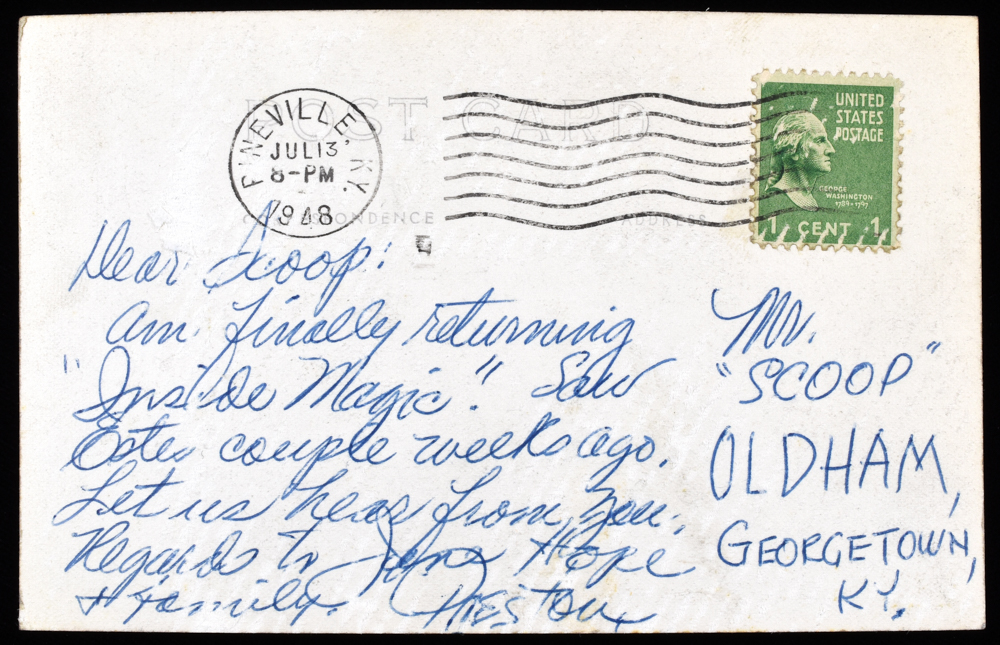 POST CARD
PINEVILLE, KY.
JUL 13
8-PM
1948
CORRESPONDENCE
ADDRESS
UNITED
STATES
POSTAGE
GEORGE
WASHINGTON
1789-1797
1 CENT 1
Dear Scoop:
Am finally returning
"Inside Magic". Saw
Estes couple weeks ago.
Let us hear from you.
Regards to Hope
+ Family. Preston
Mr.
"SCOOP"
OLDHAM,
GEORGETOWN,
KY.